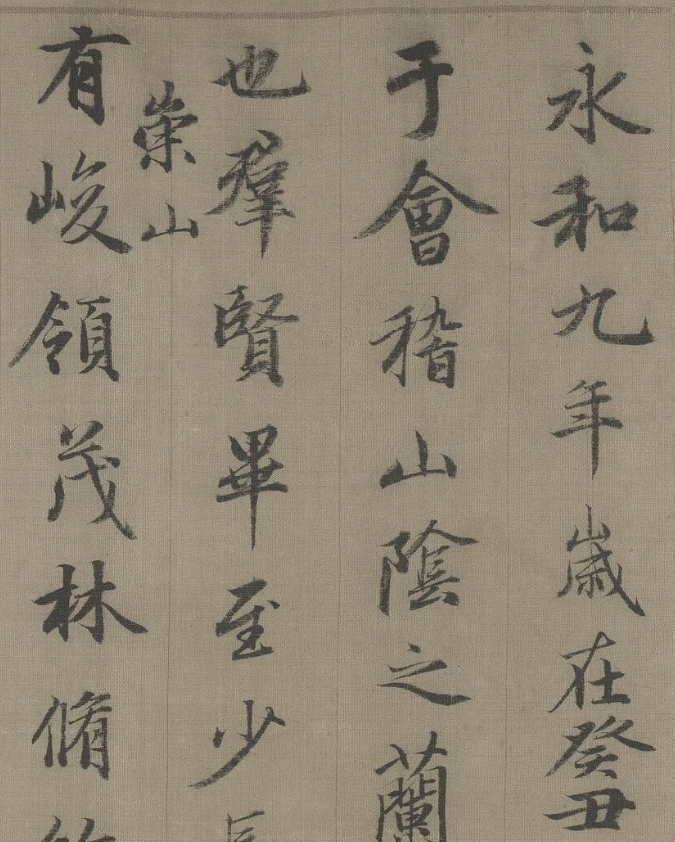 永和九年歲在癸丑
于會稽山陰之蘭
也羣賢畢至少長
崇山
有峻領茂林脩竹